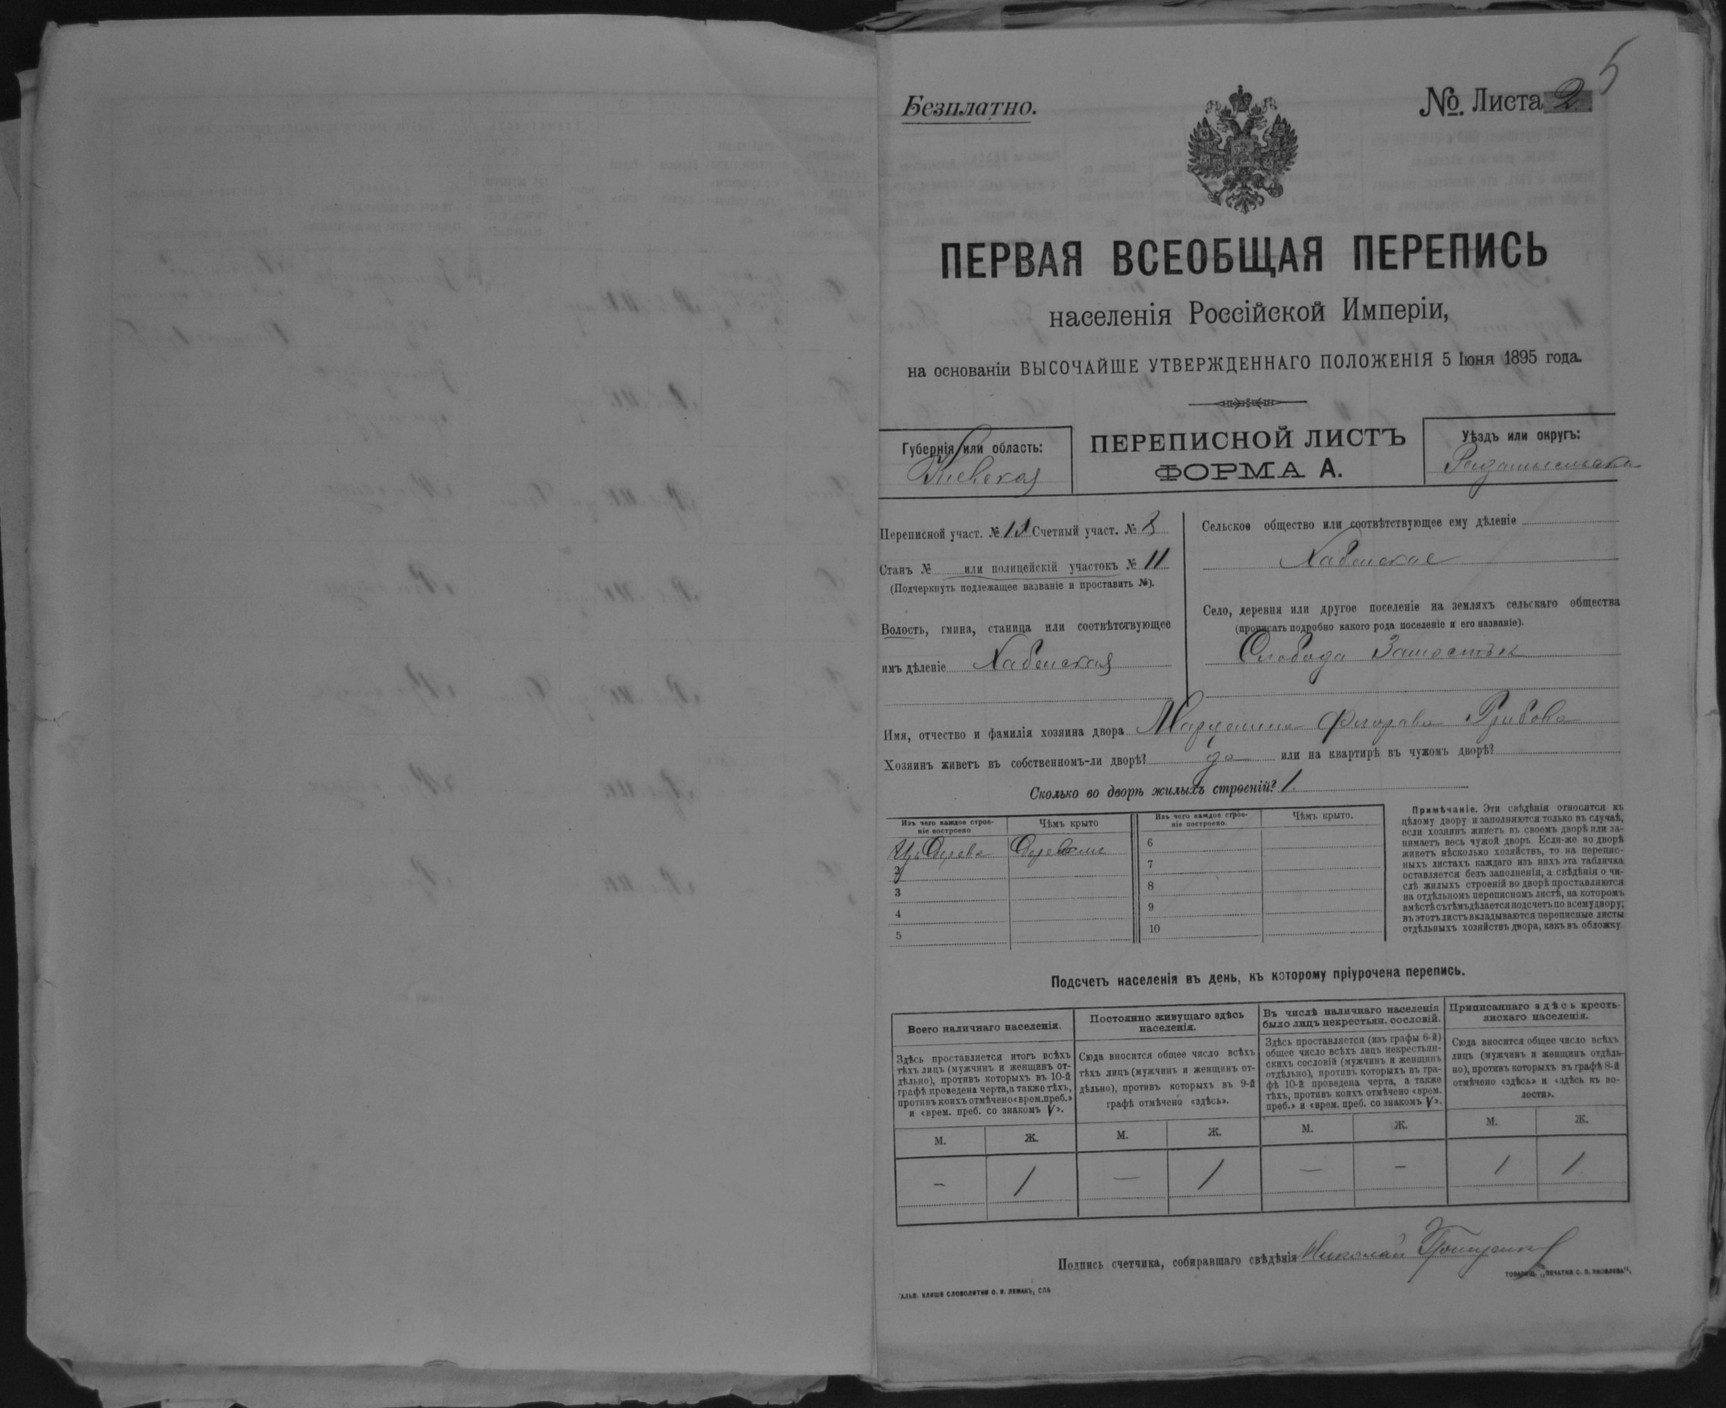 5
Безплатно.
№ Листа 2
ПЕРВАЯ ВСЕОБЩАЯ ПЕРЕПИСЬ
населенія Россійской Имперіи,
на основаніи ВЫСОЧАЙШЕ УТВЕРЖДЕННАГО ПОЛОЖЕНІЯ 5 Іюня 1895 года.
Губернія или область:
Кіевская
ПЕРЕПИСНОЙ ЛИСТЪ
ФОРМА А.
Уѣздъ или округъ:
Переписной участ. № Счетный участ. № 3
Станъ № или полицейскій участокъ № 11
(Подчеркнуть подлежащее названіе и проставить №).
Волость, гмина, станица или соотвѣтствующее
имъ дѣленіе Хабенская
Сельское общество или соотвѣтствующее ему дѣленіе
Хабенское
Село, деревня или другое поселеніе на земляхъ сельскаго общества
(прописать подробно какого рода поселеніе и его названіе).
Слобода
Имя, отчество и фамилія хозяина двора
Хозяинъ живетъ въ собственномъ-ли дворѣ? да или на квартирѣ въ чужомъ дворѣ?
Сколько во дворѣ жилыхъ строеній? 1.
Изъ чего каждое строе-
ніе построено
Чѣмъ крыто
Изъ чего каждое строе-
ніе построено.
Чѣмъ крыто.
Изъ Дерева
2
3
4
5
6
7
8
9
10
Примѣчаніе. Эти свѣдѣнія относятся къ
цѣлому двору и заполняются только въ случаѣ,
если хозяинъ живетъ въ своемъ дворѣ или за-
нимаетъ весь чужой дворъ. Если-же во дворѣ
живетъ нѣсколько хозяйствъ, то на перепис-
ныхъ листахъ каждаго изъ нихъ эта табличка
оставляется безъ заполненія, а свѣдѣнія о чи-
слѣ жилыхъ строеній во дворѣ проставляются
на отдѣльномъ переписномъ листѣ, на которомъ
вмѣстѣ съ тѣмъ дѣлается подсчетъ по всему двору;
въ этотъ листъ вкладываются переписные листы
отдѣльныхъ хозяйствъ двора, какъ въ обложку.
Подсчетъ населенія въ день, къ которому пріурочена перепись.
Всего наличнаго населенія.
Постоянно живущаго здѣсь
населенія.
Въ числѣ наличнаго населенія
было лицъ некрестьян. сословій.
Приписаннаго здѣсь кресть-
янскаго населенія.
Здѣсь проставляется итогъ всѣхъ
тѣхъ лицъ (мужчинъ и женщинъ от-
дѣльно), противъ которыхъ въ 10-й
графѣ проведена черта, а также тѣхъ,
противъ коихъ отмѣчено «врем. преб.»
и «врем. преб. со знакомъ V».
Сюда вносится общее число всѣхъ
тѣхъ лицъ (мужчинъ и женщинъ от-
дѣльно), противъ которыхъ въ 9-й
графѣ отмѣчено «здѣсь».
Здѣсь проставляется (изъ графы 6-й)
общее число всѣхъ лицъ некрестьян-
скихъ сословій (мужчинъ и женщинъ
отдѣльно), противъ которыхъ въ гра-
фѣ 10-й проведена черта, а также
тѣхъ, противъ коихъ отмѣчено «врем.
преб.» и «врем. преб. со знакомъ V».
Сюда вносится общее число всѣхъ
лицъ (мужчинъ и женщинъ отдѣль-
но), противъ которыхъ въ графѣ 8-й
отмѣчено «здѣсь» и «здѣсь въ во-
лости».
М. Ж. М. Ж. М. Ж. М. Ж.
— 1 — 1 — — 1 1
Подпись счетчика, собиравшаго свѣдѣнія Николай
ГАЛЬВ. КЛИШЕ СЛОВОЛИТНИ О. И. ЛЕМАНЪ, СПБ
ТОВАРИЩ. „ПЕЧАТНЯ С. П. ЯКОВЛЕВА“.